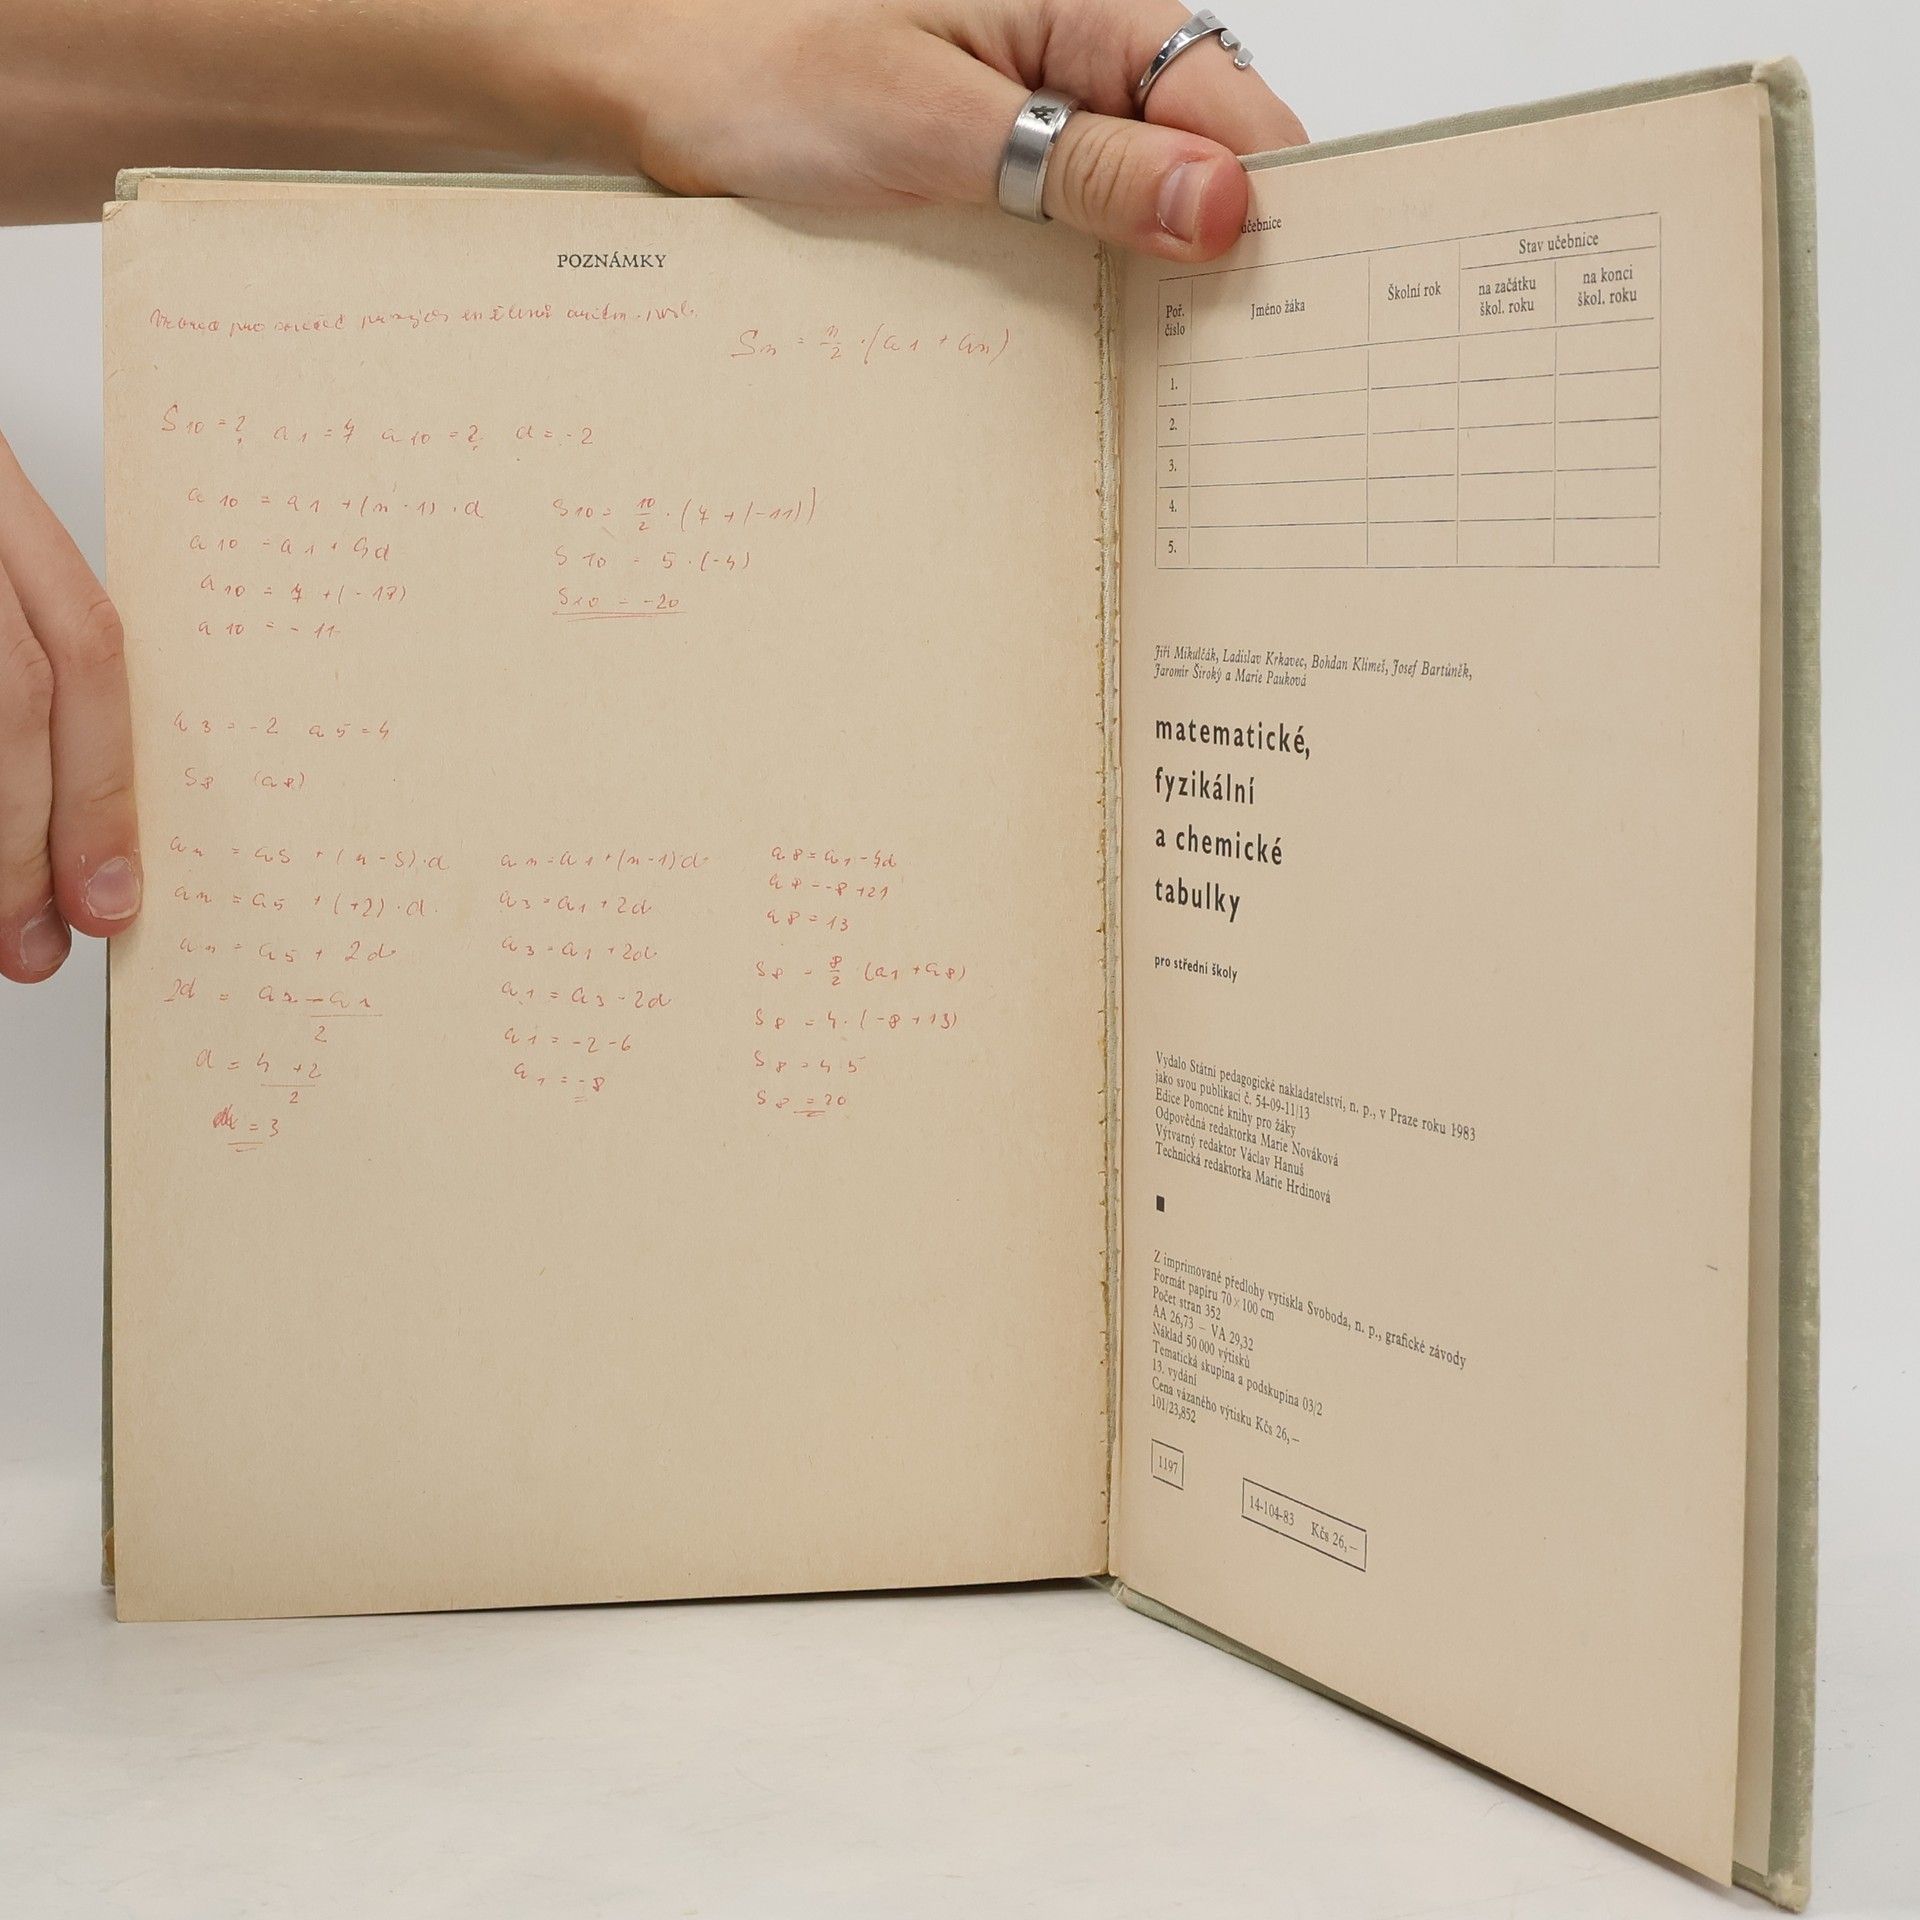 POZNÁMKY
Vzorec pro součet prvních n členů aritm. posl.
Sn = n/2 · (a1 + an)
S10 = ? a1 = 7 a10 = ? d = -2
a10 = a1 + (n-1) · d
a10 = a1 + 9d
a10 = 7 + (-18)
a10 = -11
S10 = 10/2 · (7 + (-11))
S10 = 5 · (-4)
S10 = -20
a3 = -2 a5 = 4
S8 (a8)
an = a5 + (n-5) · d
an = a5 + (+2) · d
an = a5 + 2d
2d =
2
d = 4 + 2
2
= 3
an = a1 + (n-1) d
a3 = a1 + 2d
a3 = a1 + 2d
a1 = a3 - 2d
a1 = -2 - 6
a1 = -8
a8 = a1
a8 = -8 + 21
a8 = 13
S8 = 8/2 (a1 + a8)
S8 = 4 · (-8 + 13)
S8 = 4 · 5
S8 = 20
učebnice
Poř. číslo Jméno žáka Školní rok Stav učebnice
na začátku škol. roku na konci škol. roku
1.
2.
3.
4.
5.
Jiří Mikulčák, Ladislav Krkavec, Bohdan Klimeš, Josef Bartůněk,
Jaromír Široký a Marie Pauková
matematické,
fyzikální
a chemické
tabulky
pro střední školy
Vydalo Státní pedagogické nakladatelství, n. p., v Praze roku 1983
jako svou publikaci č. 54-09-11/13
Edice Pomocné knihy pro žáky
Odpovědná redaktorka Marie Nováková
Výtvarný redaktor Václav Hanuš
Technická redaktorka Marie Hrdinová
Z imprimované předlohy vytiskla Svoboda, n. p., grafické závody
Formát papíru 70 × 100 cm
Počet stran 352
AA 26,73 – VA 29,32
Náklad 50 000 výtisků
Tematická skupina a podskupina 03/2
13. vydání
Cena vázaného výtisku Kčs 26,–
101/23,852
1197
14-104-83 Kčs 26,–